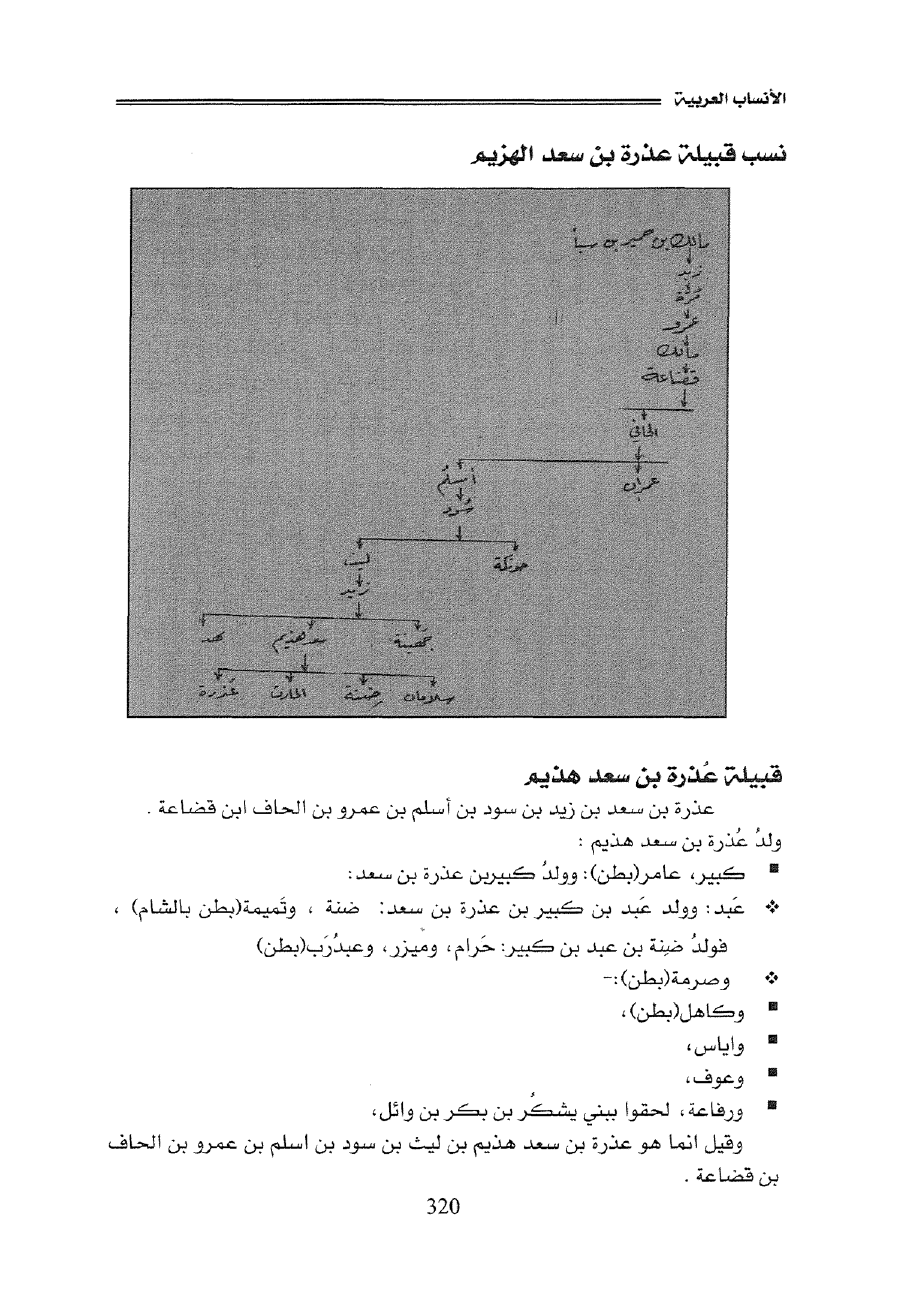 الأنساب العربية
نسب قبيلة عذرة بن سعد الهزيم
مالك بن حمير بن سبأ
زيد
مُرّة
عمرو
مالك
قضاعة
الحافي
أسلُم
عمران
سُود
ليث
حوتكة
زيد
نهد
سعد هذيم
جُهينة
عُذرة
الحارث
ضِنة
سلامان
قبيلة عُذرة بن سعد هذيم
عذرة بن سعد بن زيد بن سود بن أسلم بن عمرو بن الحاف ابن قضاعة .
ولدُ عُذرة بن سعد هذيم :
▪ كبير، عامر(بطن): وولدُ كبيربن عذرة بن سعد:
❖ عَبد: وولد عَبد بن كبير بن عذرة بن سعد: ضنة ، وتَميمة(بطن بالشام) ،
فولدُ ضِنة بن عبد بن كبير: حَرام، وميزر، وعبدُرَب(بطن)
❖ وصرمة(بطن):-
▪ وكاهل(بطن)،
▪ واياس،
▪ وعوف،
▪ ورفاعة، لحقوا ببني يشكُر بن بكر بن وائل،
وقيل انما هو عذرة بن سعد هذيم بن ليث بن سود بن اسلم بن عمرو بن الحاف
بن قضاعة .
320